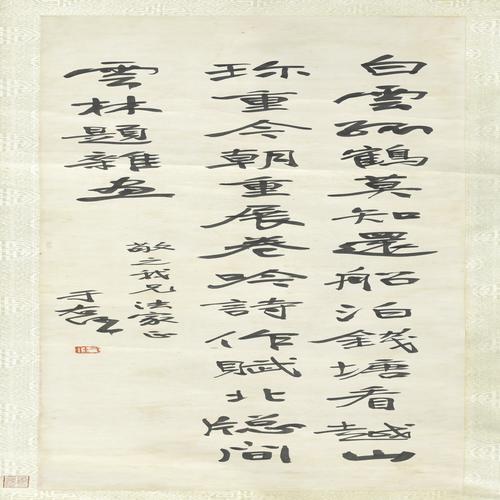 白雲孤鶴莫知還船泊錢塘看越山
珎重今朝重展卷吟詩作賦北窓間
雲林題雜畫
敬之我兄法家正
于右任